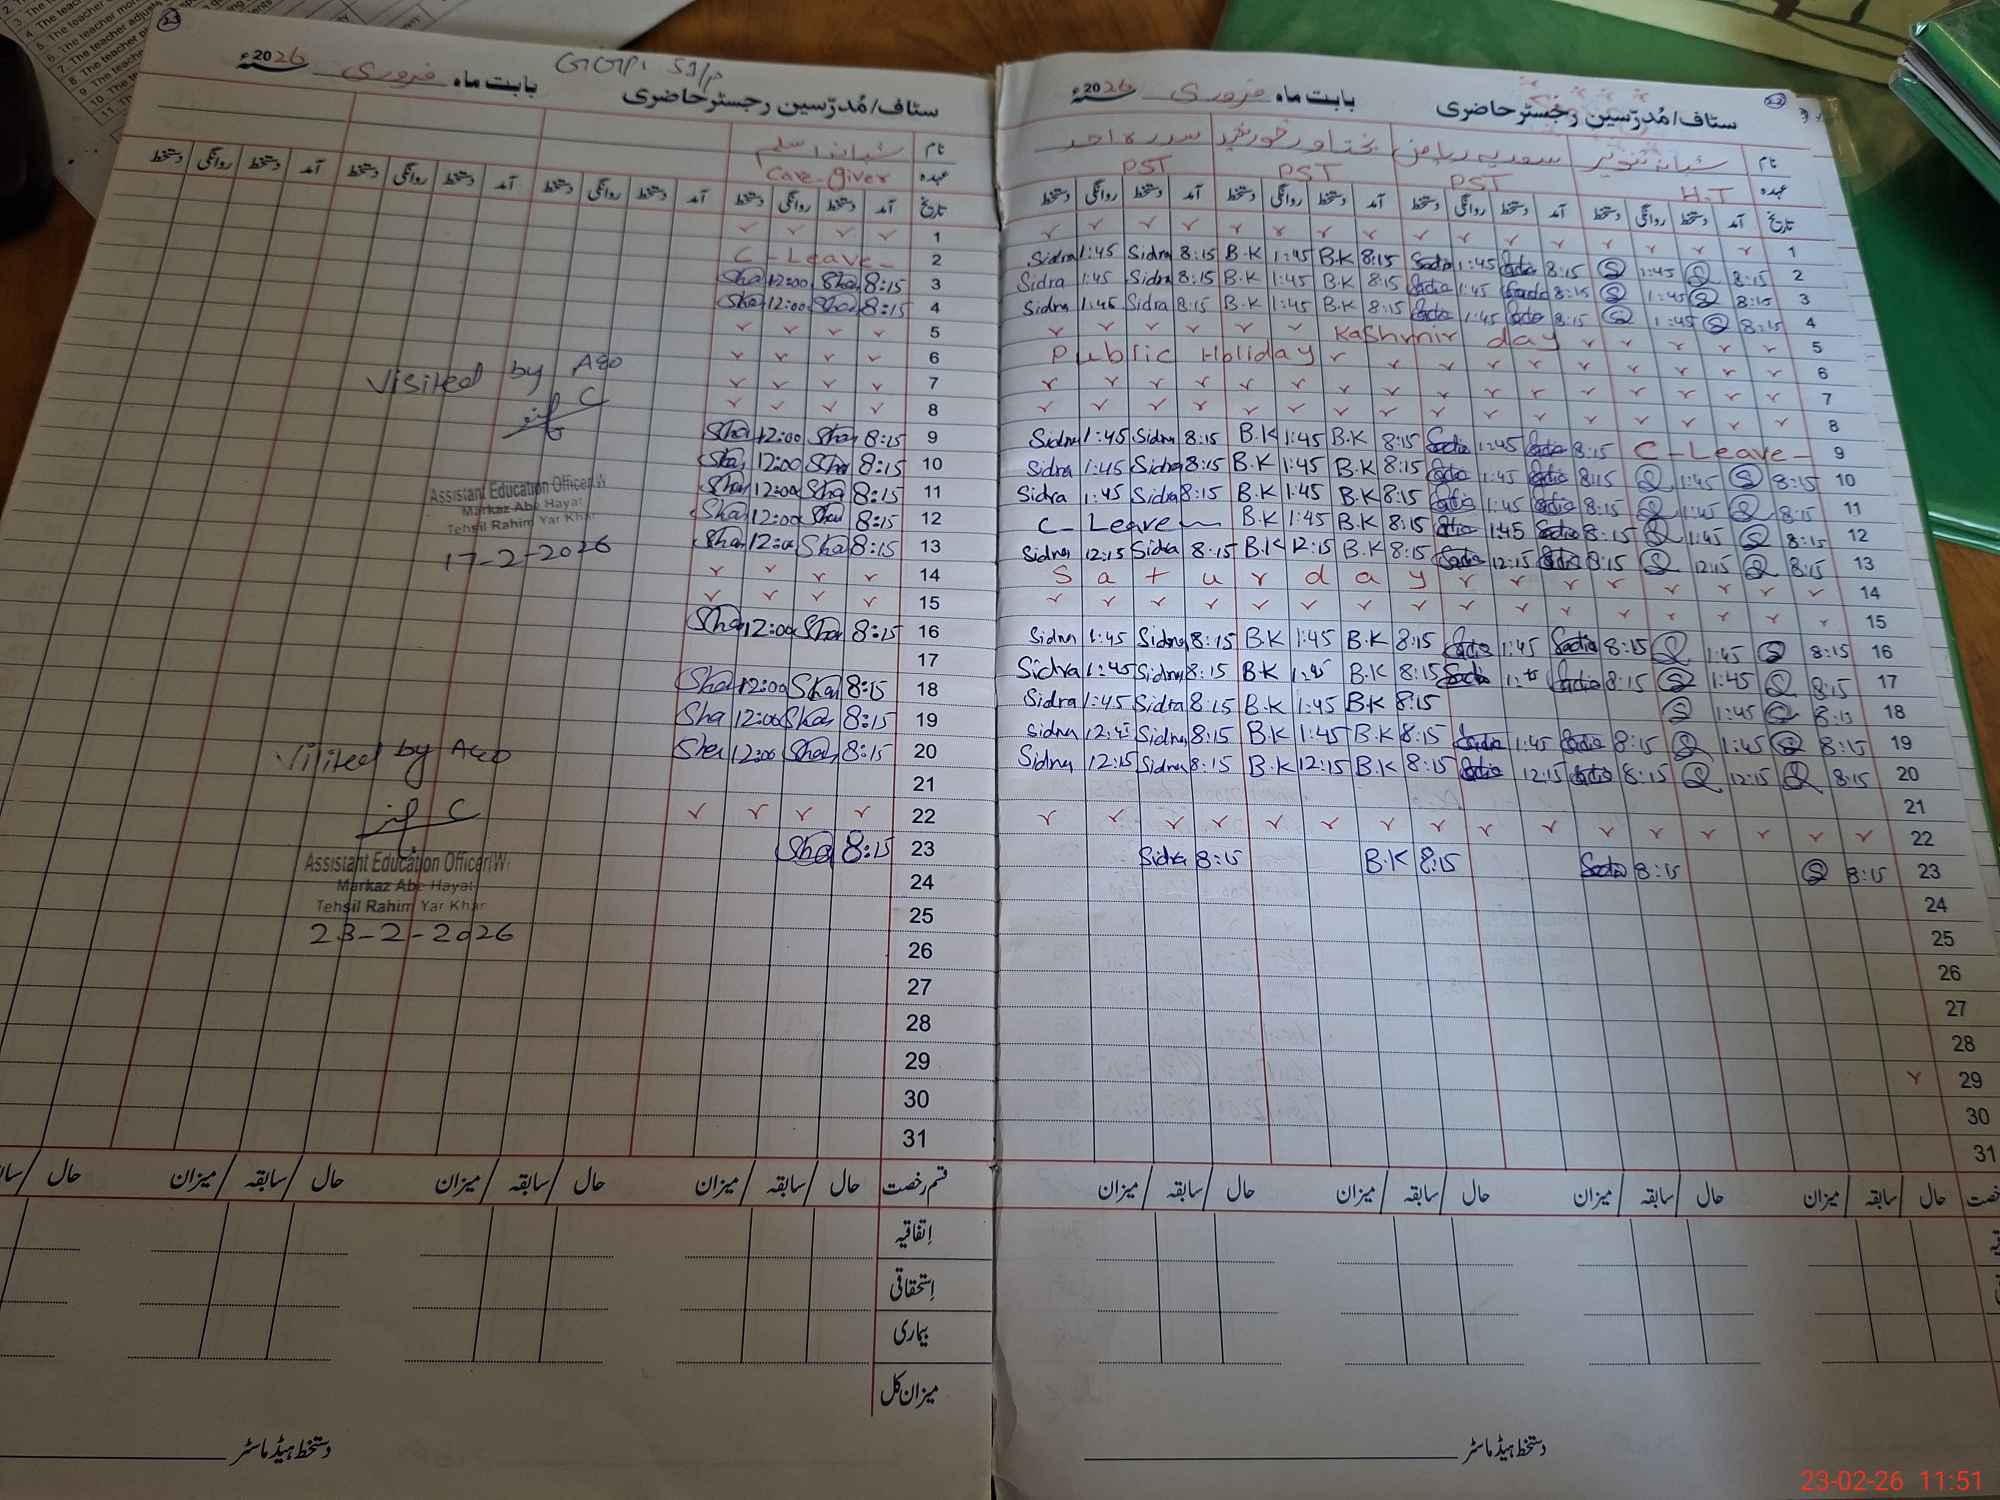 GGPS 51/P
ستاف/مُدرّسین رجسٹر حاضری بابت ماہ فروری 2026ء
نام شبانہ اسلم
عہدہ Care-giver
تاریخ آمد دستخط روانگی دستخط آمد دستخط روانگی دستخط آمد دستخط روانگی دستخط آمد دستخط روانگی دستخط
1
C-Leave 2
Sha 12:00 Sha 8:15 3
Sha 12:00 Sha 8:15 4
5
6
7
8
Sha 12:00 Sha 8:15 9
Sha 12:00 Sha 8:15 10
Sha 12:00 Sha 8:15 11
Sha 12:00 Sha 8:15 12
Sha 12:00 Sha 8:15 13
14
15
Sha 12:00 Sha 8:15 16
17
Sha 12:00 Sha 8:15 18
Sha 12:00 Sha 8:15 19
Sha 12:00 Sha 8:15 20
21
22
Sha 8:15 23
24
25
26
27
28
29
30
31
Visited by AEO
Assistant Education Officer W
Markaz Abe Hayat
Tehsil Rahim Yar Khan
17-2-2026
Visited by AEO
Assistant Education Officer W
Markaz Abe Hayat
Tehsil Rahim Yar Khan
23-2-2026
قسم رخصت حال / سابقہ / میزان حال / سابقہ / میزان حال / سابقہ / میزان حال
اِتفاقیہ
اِستحقاقی
بیماری
میزان کل
دستخط ہیڈ ماسٹر
ستاف/مُدرّسین رجسٹر حاضری بابت ماہ فروری 2026ء
نام شبانہ تنویر سعدیہ ریاض بختاور خورشید سدرہ احمد
عہدہ H.T PST PST PST
تاریخ آمد دستخط روانگی دستخط آمد دستخط روانگی دستخط آمد دستخط روانگی دستخط آمد دستخط روانگی دستخط
1
Sidra 1:45 Sidra 8:15 B.K 1:45 B.K 8:15 Sadia 1:45 Sadia 8:15 1:45 8:15 2
Sidra 1:45 Sidra 8:15 B.K 1:45 B.K 8:15 Sadia 1:45 Sadia 8:15 1:45 8:15 3
Sidra 1:45 Sidra 8:15 B.K 1:45 B.K 8:15 Sadia 1:45 Sadia 8:15 1:45 8:15 4
Kashmir day 5
Public Holiday 6
7
8
Sidra 1:45 Sidra 8:15 B.K 1:45 B.K 8:15 Sadia 1:45 Sadia 8:15 C-Leave 9
Sidra 1:45 Sidra 8:15 B.K 1:45 B.K 8:15 Sadia 1:45 Sadia 8:15 1:45 8:15 10
Sidra 1:45 Sidra 8:15 B.K 1:45 B.K 8:15 Sadia 1:45 Sadia 8:15 1:45 8:15 11
C-Leave B.K 1:45 B.K 8:15 Sadia 1:45 Sadia 8:15 1:45 8:15 12
Sidra 12:15 Sidra 8:15 B.K 12:15 B.K 8:15 Sadia 12:15 Sadia 8:15 12:15 8:15 13
Saturday 14
15
Sidra 1:45 Sidra 8:15 B.K 1:45 B.K 8:15 Sadia 1:45 Sadia 8:15 1:45 8:15 16
Sidra 1:45 Sidra 8:15 B.K 1:45 B.K 8:15 Sadia Sadia 8:15 1:45 8:15 17
Sidra 1:45 Sidra 8:15 B.K 1:45 B.K 8:15 1:45 8:15 18
Sidra Sidra 8:15 B.K 1:45 B.K 8:15 Sadia 1:45 Sadia 8:15 1:45 8:15 19
Sidra 12:15 Sidra 8:15 B.K 12:15 B.K 8:15 Sadia 12:15 Sadia 8:15 12:15 8:15 20
21
22
Sidra 8:15 B.K 8:15 Sadia 8:15 8:15 23
24
25
26
27
28
29
30
31
حال / سابقہ / میزان حال / سابقہ / میزان حال / سابقہ / میزان حال / سابقہ / میزان
دستخط ہیڈ ماسٹر
23-02-26 11:51